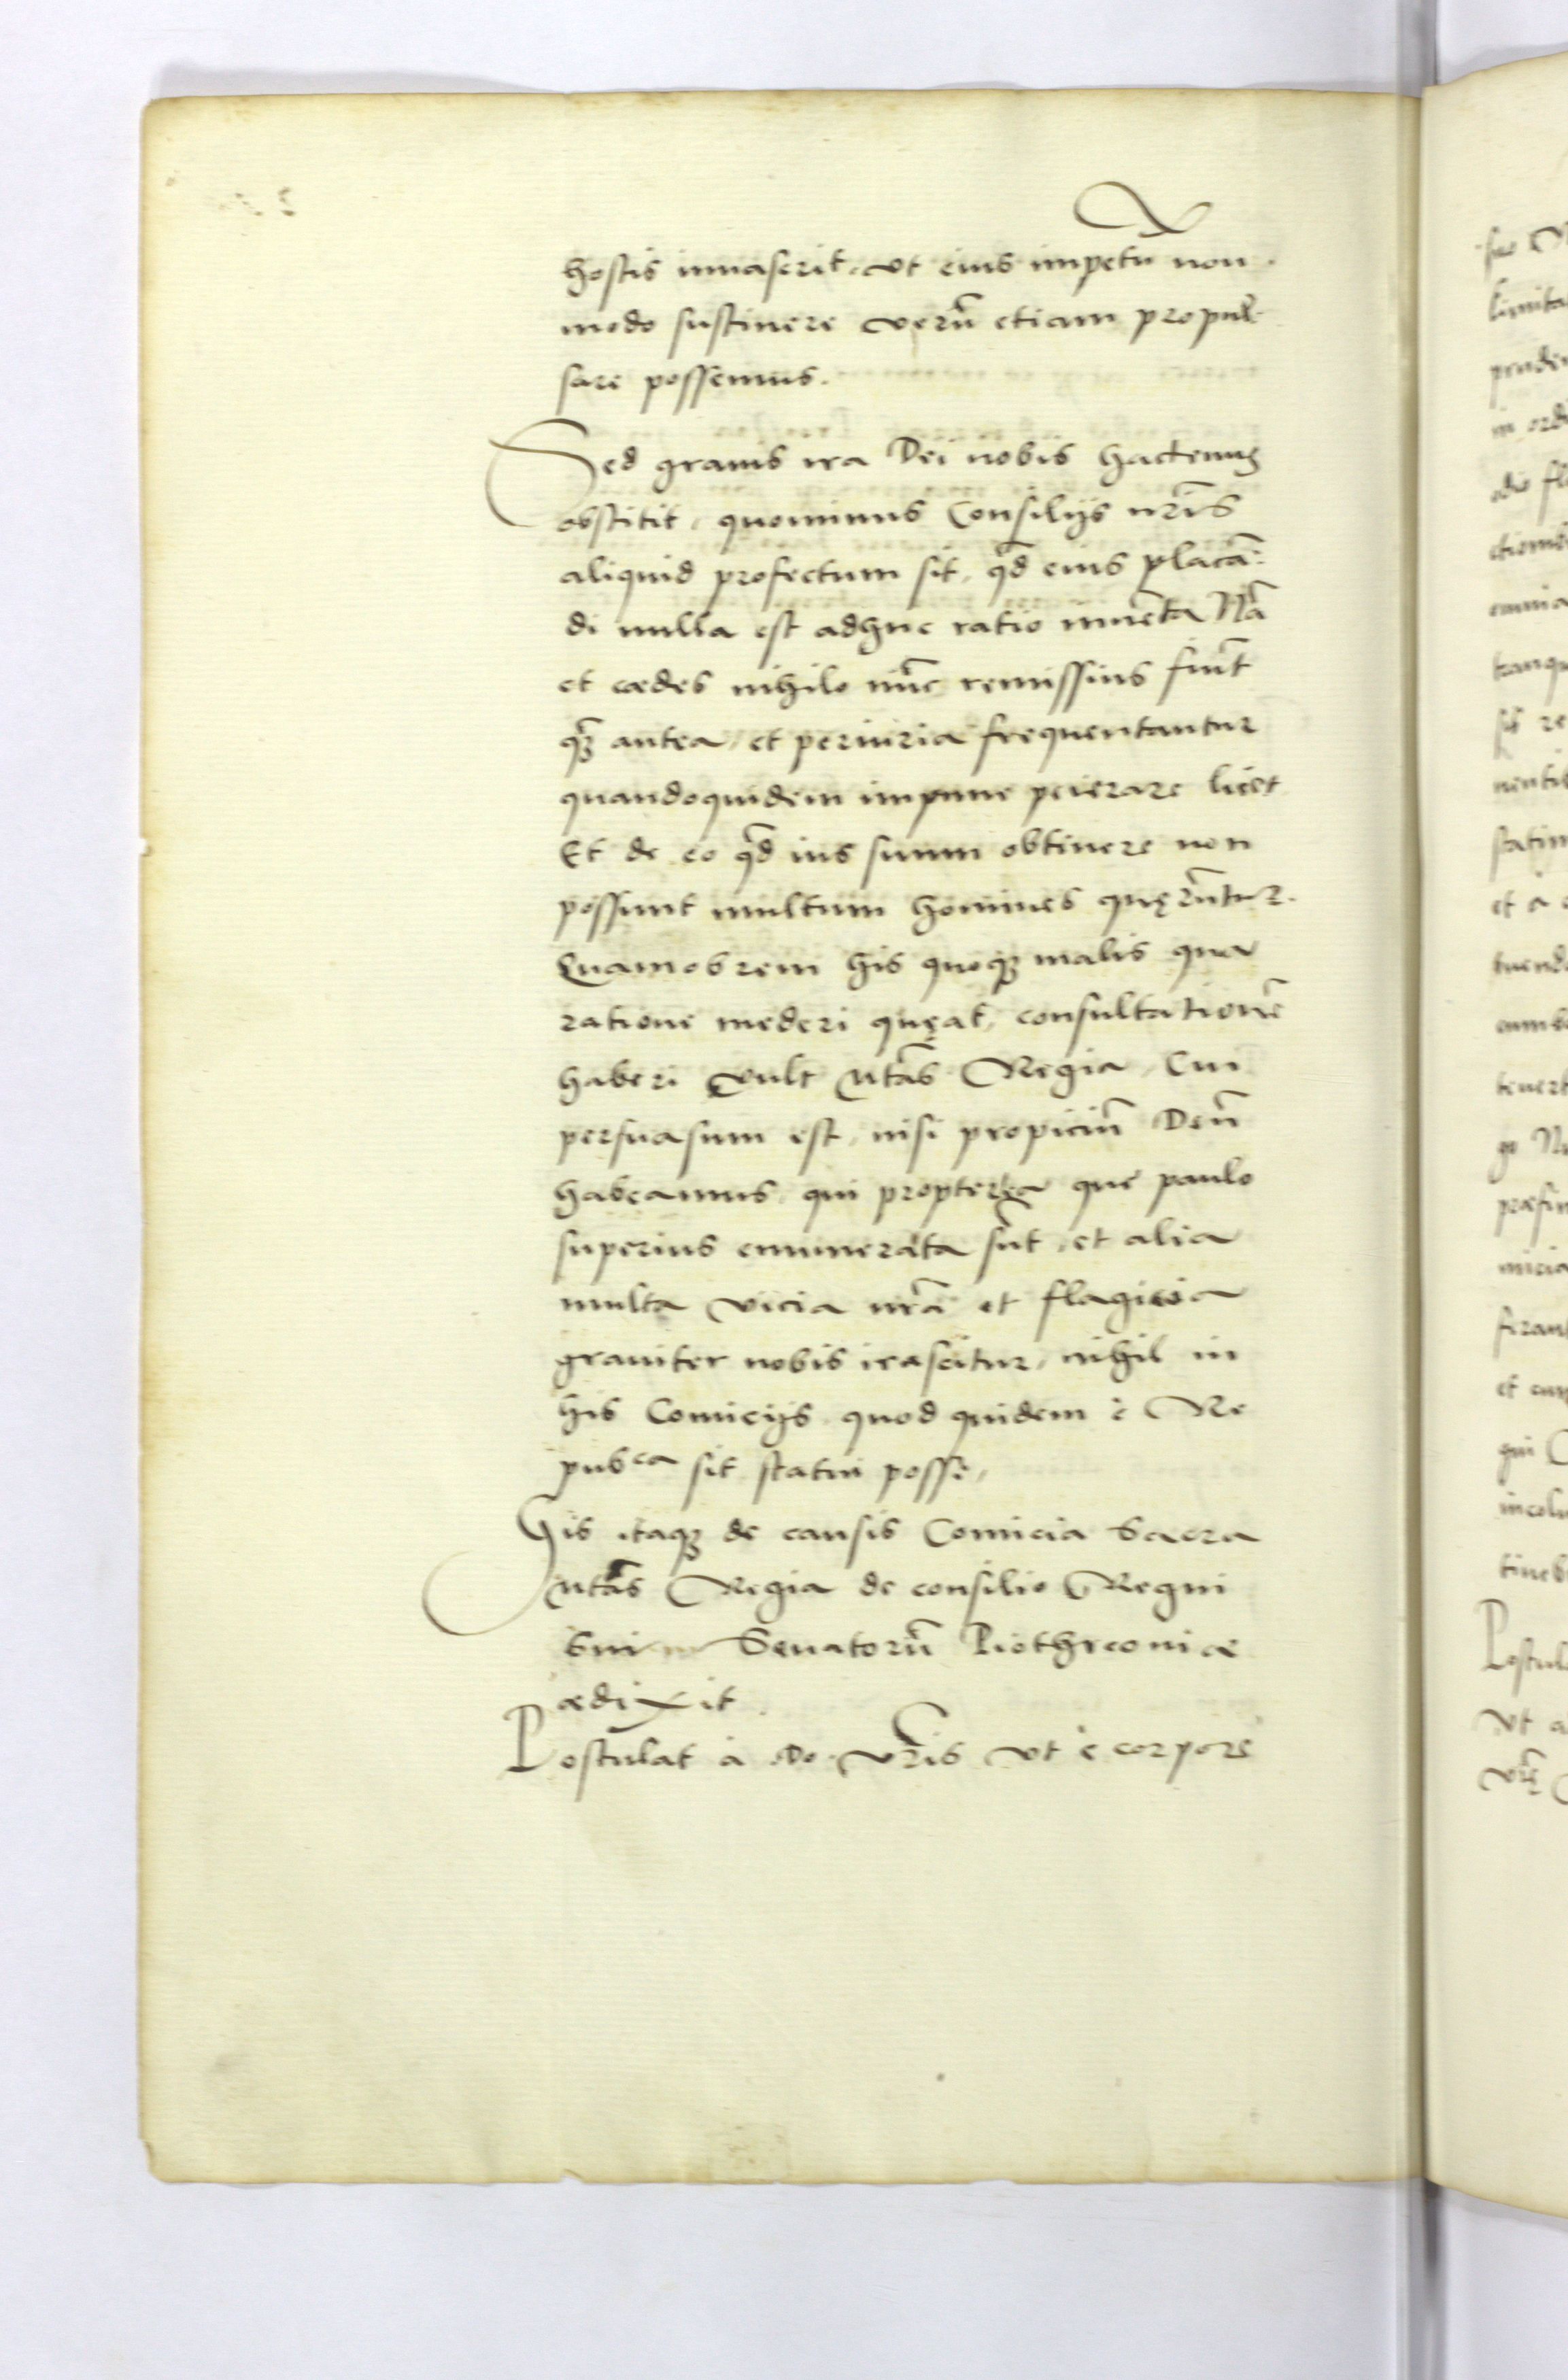 hostis inuaserit, vt eius impetũ non
modo sustinere verũ etiam propul-
sare possemus.
Sed grauis ira Dei nobis hactenus
obstitit, quominus Consilijs nr̃is
aliquid profectum sit, qd̃ eius placã:
di nulla est adhuc ratio inuẽta Nã
et cædes nihilo nũc remissius fiũt
q̃ꝫ antea, et periuria frequentantur
quandoquidem impune peierare licet
Et de eo qd̃ ius suum obtinere non
possunt multum homines quęrũtur.
Quamobrem his quoqꝫ malis qua
ratione mederi quęat, consultationẽ
haberi vult Mtãs Regia, Cui
persuasum est, nisi propiciũ Deũ
habeamus, qui propterea que paulo
superius enumerata sũt, et alia
multa vicia nr̃a et flagicia
grauiter nobis irascitur, nihil in
his Comicijs quod quidem è Re
pubca sit statui posse,
His itaqꝫ de causis Comicia Sacra
Mtãs Regia de consilio Regni
Sui Senatorũ Piothrconiæ
ædixit.
Postulat à Do. vr̃is vt è corpore